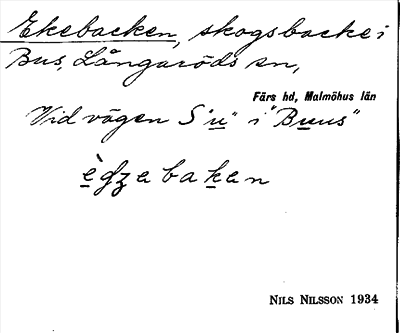 Ekebacken, skogsbacke i
Bus, Långaröds sn,
Färs hd, Malmöhus län
Vid vägen S "u" i "Buus"
èdzebaken
NILS NILSSON 1934